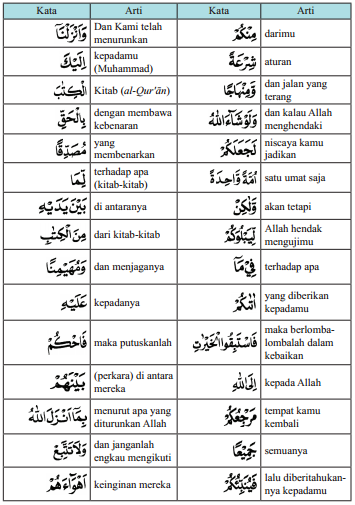 Kata Arti Kata Arti
وَاَنْزَلْنَآ Dan Kami telah menurunkan مِنْكُمْ darimu
اِلَيْكَ kepadamu (Muhammad) شِرْعَةً aturan
الْكِتٰبَ Kitab (al-Qur'ān) وَّمِنْهَاجًا dan jalan yang terang
بِالْحَقِّ dengan membawa kebenaran وَلَوْ شَاۤءَ اللّٰهُ dan kalau Allah menghendaki
مُصَدِّقًا yang membenarkan لَجَعَلَكُمْ niscaya kamu jadikan
لِّمَا terhadap apa (kitab-kitab) اُمَّةً وَّاحِدَةً satu umat saja
بَيْنَ يَدَيْهِ di antaranya وَّلٰكِنْ akan tetapi
مِنَ الْكِتٰبِ dari kitab-kitab لِّيَبْلُوَكُمْ Allah hendak mengujimu
وَمُهَيْمِنًا dan menjaganya فِيْ مَآ terhadap apa
عَلَيْهِ kepadanya اٰتٰىكُمْ yang diberikan kepadamu
فَاحْكُمْ maka putuskanlah فَاسْتَبِقُوا الْخَيْرٰتِ maka berlomba-lombalah dalam kebaikan
بَيْنَهُمْ (perkara) di antara mereka اِلَى اللّٰهِ kepada Allah
بِمَآ اَنْزَلَ اللّٰهُ menurut apa yang diturunkan Allah مَرْجِعُكُمْ tempat kamu kembali
وَلَا تَتَّبِعْ dan janganlah engkau mengikuti جَمِيْعًا semuanya
اَهْوَاۤءَهُمْ keinginan mereka فَيُنَبِّئُكُمْ lalu diberitahukan-nya kepadamu